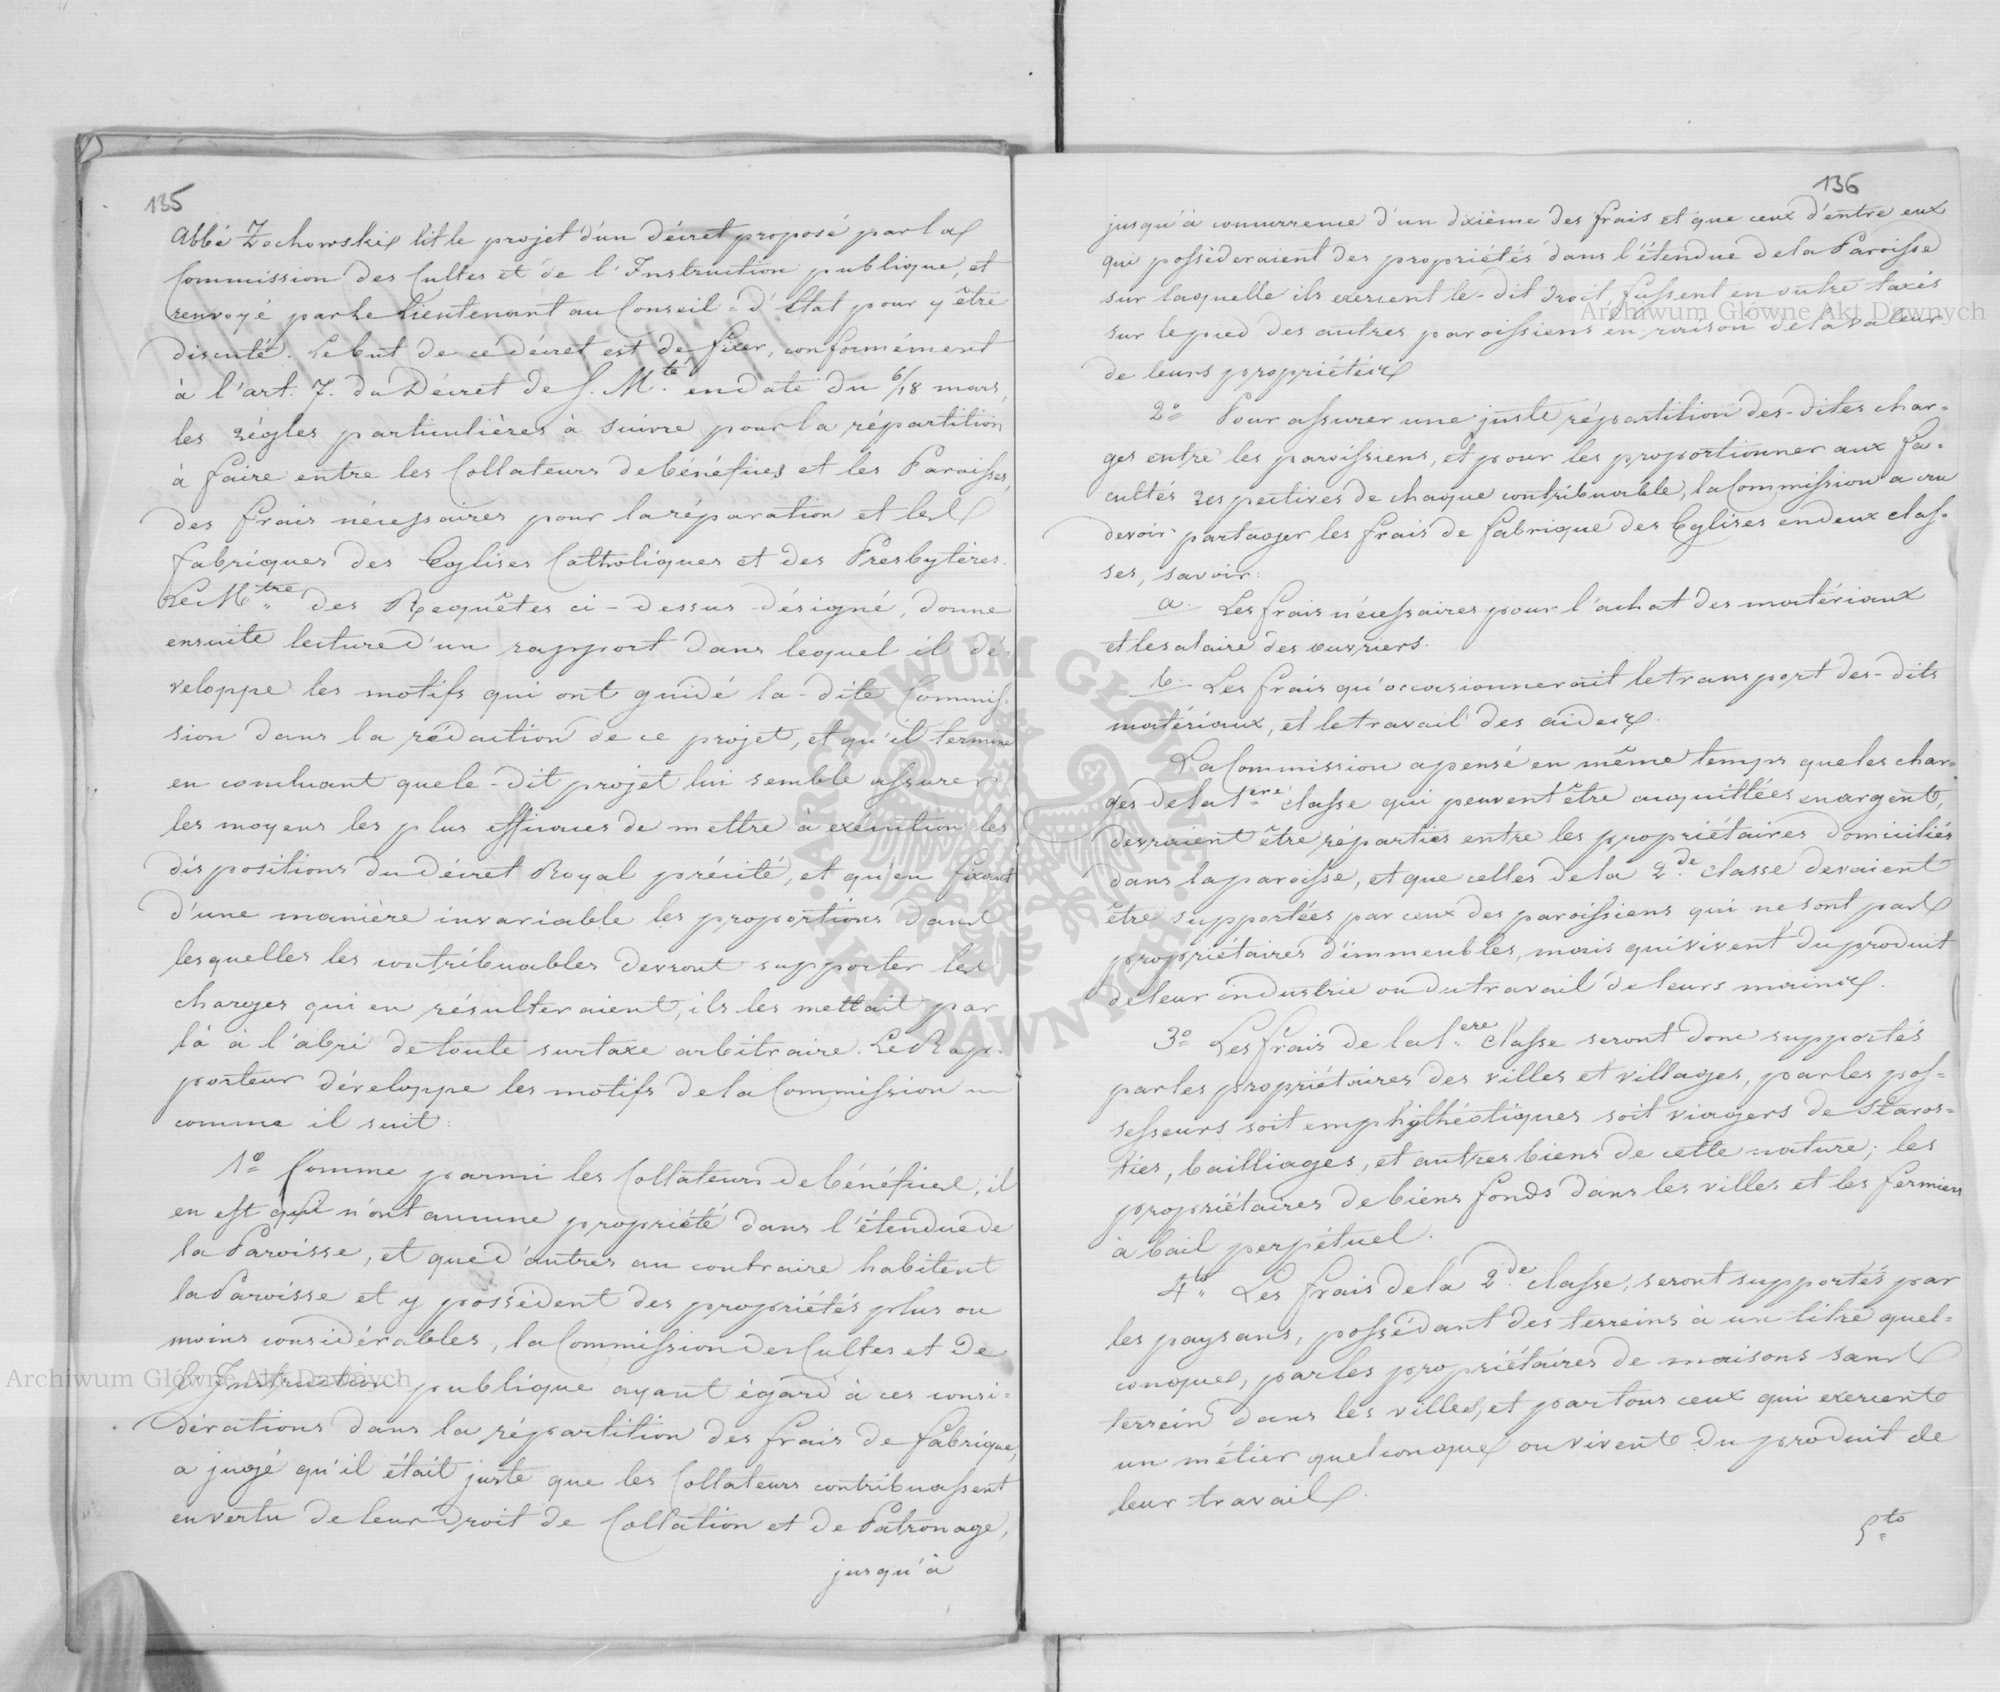 135
Abbé Zochowski lit le projet d'un décret proposé par la
Commission des Cultes et de l'Instruction publique, et
renvoyé par le Lieutenant au Conseil-d'Etat pour y être
discuté. Le but de ce décret est de fixer, conformément
à l'art. 7. du Décret de S. M.té en date du 6/18 mars,
les règles particulières à suivre pour la répartition
à faire entre les Collateurs de bénéfices et les Paroisses,
des frais nécessaires pour la réparation et les
fabriques des Eglises Catholiques et des Presbytères.
Le M.tre des Requêtes ci-dessus désigné, donne
ensuite lecture d'un rapport dans lequel il dé-
veloppe les motifs qui ont guidé la-dite Commis-
sion dans la rédaction de ce projet, et qu'il termine
en concluant que le-dit projet lui semble assurer
les moyens les plus efficaces de mettre à exécution les
dispositions du Décret Royal précité, et qu'en fixant
d'une manière invariable les proportions dans
lesquelles les contribuables devront supporter les
charges qui en résulteraient, ils les mettait par
là à l'abri de toute surtaxe arbitraire. Le Rap-
porteur développe les motifs de la Commission
comme il suit:
1° Comme parmi les Collateurs de bénéfices, il
en est qui n'ont aucune propriété dans l'étendue de
la Paroisse, et que d'autres au contraire habitent
la Paroisse et y possèdent des propriétés plus ou
moins considérables, la Commission des Cultes et de
l'Instruction publique ayant égard à ces consi-
dérations dans la répartition des frais de fabrique,
a jugé qu'il était juste que les Collateurs contribuassent
en vertu de leur Droit de Collation et de Patronage,
jusqu'à
136
jusqu'à concurrence d'un dixième des frais et que ceux d'entre eux
qui possèderaient des propriétés dans l'étendue de la Paroisse
sur laquelle ils exercent le-dit droit, fussent en outre taxés
sur le pied des autres paroissiens en raison de la valeur
de leurs propriétés
2° Pour assurer une juste répartition des-dites char-
ges entre les paroissiens, et pour les proportionner aux fa-
cultés respectives de chaque contribuable, la Commission a cru
devoir partager les frais de fabrique des Eglises en deux clas-
ses, savoir:
a. Les frais nécessaires pour l'achat des matériaux
et le salaire des ouvriers.
b. Les frais qu'occasionnerait le transport des-dits
matériaux, et le travail des aides.
La Commission a pensé en même temps que les char-
ges de la 1.ere classe qui peuvent être acquittées en argent,
devraient être réparties entre les propriétaires domiciliés
dans la paroisse, et que celles de la 2.de classe devaient
être supportées par ceux des paroissiens qui ne sont pas
propriétaires d'immeubles, mais qui vivent du produit
de leur industrie ou du travail de leurs mains.
3° Les frais de la 1.ere classe seront donc supportés
par les propriétaires des villes et villages, par les pos-
sesseurs soit emphythéotiques soit viagers de Staros-
ties, bailliages, et autres biens de cette nature; les
propriétaires de biens fonds dans les villes et les fermiers
à bail perpétuel.
4to Les frais de la 2.de classe, seront supportés par
les paysans, possédant des terreins à un titre quel-
conque, par les propriétaires de maisons sans
terrein dans les villes, et par tous ceux qui exercent
un métier quelconque ou vivent du produit de
leur travail.
5to
Archiwum Główne Akt Dawnych
Archiwum Główne Akt Dawnych
ARCHIWUM GŁÓWNE AKT DAWNYCH